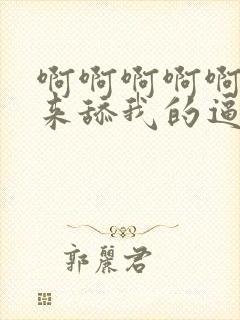 啊啊啊啊啊
来舔我的逼
郭麗君